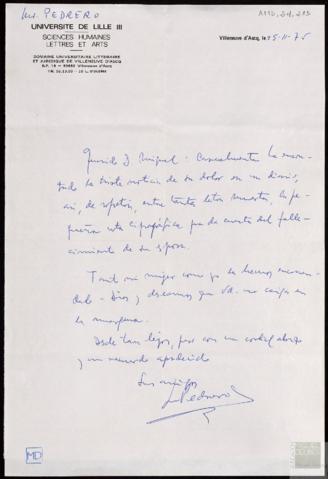 PEDRERO
UNIVERSITE DE LILLE III
SCIENCES HUMAINES
LETTRES ET ARTS
DOMAINE UNIVERSITAIRE LITTERAIRE
ET JURIDIQUE DE VILLENEUVE D'ASCQ
Villeneuve d'Ascq, le 5-11-75
Querido D. Miguel: Casualmente he encon-
trado la triste noticia de su dolor en un diario,
así, de sopetón, entre tanta letra muerta, la pe-
queña nota tipográfica que da cuenta del falle-
cimiento de su esposa.
Tanto mi mujer como yo la hemos encomen-
dado a Dios, y deseamos que Vd. no caiga en
la amargura.
Desde tan lejos, pero con un cordial abrazo
y un recuerdo
Sus amigos
Pedrero
MD